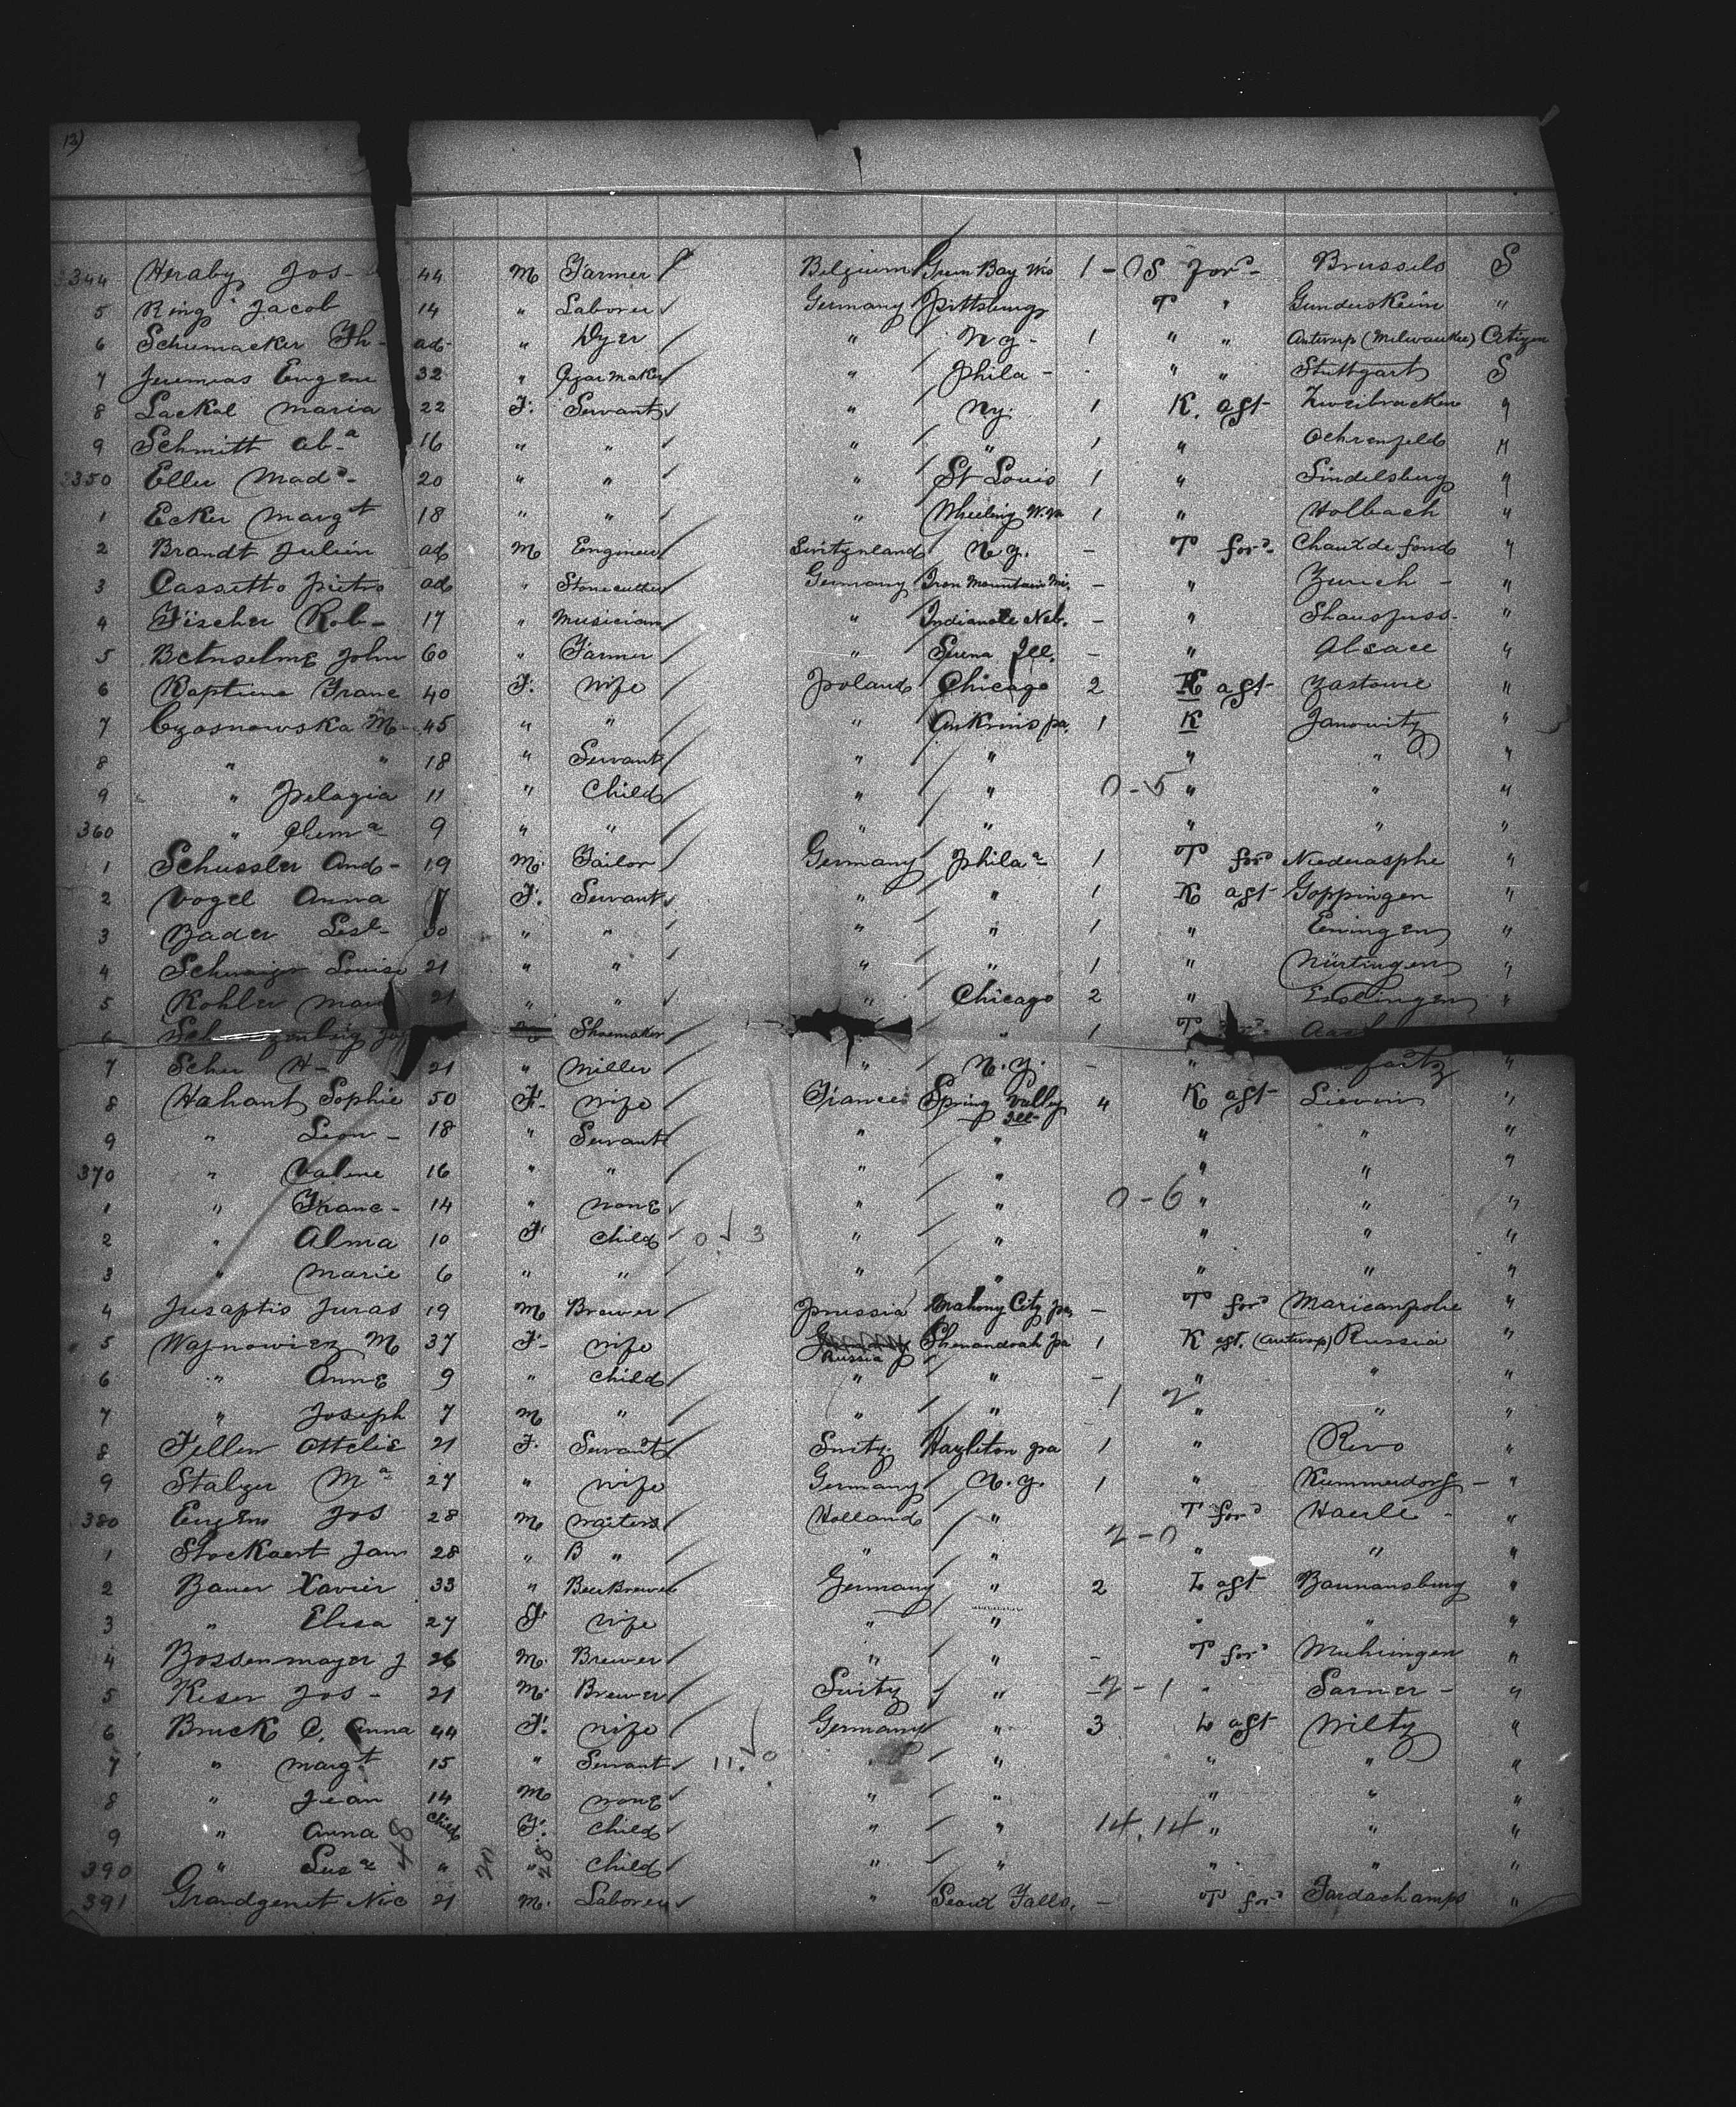 13)
344 Heraby Jos- 44 M Farmer Belgium Green Bay Wis 1 - 0 S for^d - Brussels S
5 Ring Jacob 14 " Laborer Germany Pittsburg T " Gunderskeim "
6 Schumacker Th- ad- " Dyer " N y - 1 " " Antwerp (Milwaukee) Citizen
7 Jeremias Eugene 32 " Cigar Maker " Phila - - " " Stuttgart S
8 Lackal Maria 22 F. Servant " Ny. 1 K. aft Zweibracken "
9 Schmitt ab-a 16 " " " " 1 " Ochrenfeld "
2350 Eller Mad^a - 20 " " " St Louis 1 " Sindelsburg "
1 Ecker Marg^t 18 " " " Wheeling W.Va 1 " Holbach "
2 Brandt Julien ad M Engineer Switzerland N y. - T for^d - Chaux de fond "
3 Cassetto Pietro ad " Stonecutter Germany Iron Mountain Mi. - " Zurich - "
4 Fischer Rob- 17 " Musician " Indianole Neb. - " "
5 John 60 " Farmer " Serena Ill. - " Alsace "
6 Kaptiuna Franc 40 F. Wife Poland Chicago 2 K aft Zastowie "
7 Czasnowska M 45 " " " pa. 1 K Janowitz "
8 " " 18 " Servant " " " " "
9 " Pelagia 11 " Child " " 0-5 " " "
360 " Clem^a 9 " " " " " " "
1 Schussler And- 19 M. Tailor Germany Phila^a - 1 T for^d Niederasphe "
2 Vogel Anna 17 F. Servant " " 1 K aft Goppingen "
3 Bader Lisl- 30 " " " " 1 " Eningen "
4 Louise 21 " " " " 1 " Nürtingen "
5 Kohler Mar 21 " " " Chicago 2 " Esslingen "
6 Shoemaker " 1 T
7 Scher H- 21 " Miller " N. y. - " "
8 Hahant Sophie 50 F- Wife France Spring Valley Ill- 4 K aft Lievin "
9 " Leon - 18 " Servant " " " " "
370 " Valerie 16 " " " " " " "
1 " Franc- 14 " none " " 0-6 " " "
2 " Alma 10 F child 0 √ 3 " " " " "
3 " Marie 6 " " " " " " "
4 Jusaptis Juras 19 M Brewer Prussia Mahony City pa, - T for^d Mariampolie "
5 Wajnowicz M 37 F- Wife Russia Shenandoah Pa 1 K aft. (Antwerp) Russia "
6 " Anne 9 " child " " - " " "
7 " Joseph 7 M " " " 1 2 " " "
8 Feller Ottelie 21 F. Servant Switz. Hazleton pa 1 " Revo "
9 Stalzer M^a 27 " Wife Germany N. y. 1 " Kummerdorf - "
380 Eugens Jos 28 M Waiters Holland " T for^d Haerle - "
1 Stockaert Jan 28 " B " " " 2-0 " " "
2 Bauer Xavier 33 " Beer Brewer Germany " 2 L aft Baunansburg "
3 " Elisa 27 F wife " " " " "
4 Bossenmayer J 26 M. Brewer " " - T for^d Muhringen "
5 Keser Jos - 21 M. Brewer Switz " -2-1 " Sarner - "
6 Bruck C. Anna 44 F. Wife Germany " 3 L aft Wiltz "
7 " Marg^t 15 " Servant 11. √ 0 " " " " "
8 " Jean 14 M none " " " " "
9 " Anna Child F. child " " 14.14 " " "
390 " Sus^a " 48 20 28 " child " " " " "
391 Grandgenet Nic 21 M. Laborer " Seoux Falls, - T for^d Tardachamps "